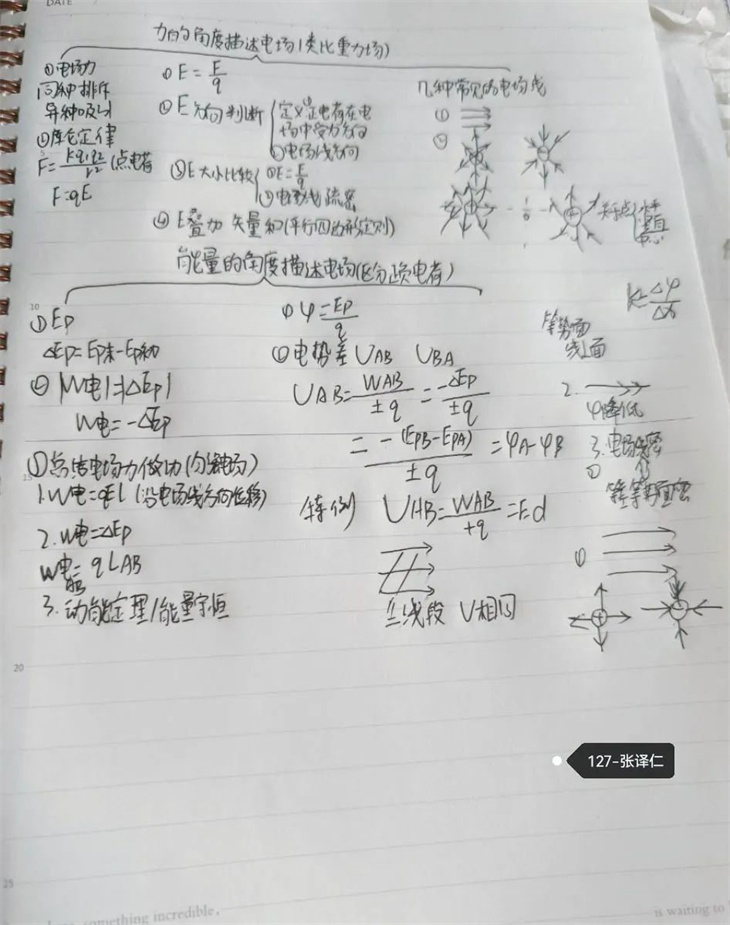 DATE
力的角度描述电场(类比重力场)
①电场力
同种排斥
异种吸引
②库仑定律
F=kq₁q₂/r²(点电荷
F=qE
①E=F/q
②E方向判断
定义:正电荷在电
场中受力方向
②电场线方向
③E大小比较
①E=F/q
②电场线疏密
④E叠加 矢量和(平行四边形定则)
几种常见的电场线
①
②
能量的角度描述电场(区分正负电荷)
10
①Ep
ΔEp=Ep末-Ep初
②|W电|=|ΔEp|
W电=-ΔEp
①φ=Ep/q
②电势差UAB UBA
UAB=WAB/±q=-ΔEp/±q
=-(EpB-EpA)/±q=φA-φB
k=Δφ/Δx
等势面
线⊥面
2.
φ降低
3.电场线密
等差等势面密
③总结电场力做功(匀强电场)
15
1.W电=qEl(沿电场线方向位移)
2.W电=ΔEp
W电=qUAB
AB
3.动能定理/能量守恒
特例 UAB=WAB/+q=Ed
线段 U相同
①
20
127-张译仁
25
something incredible,
is waiting to